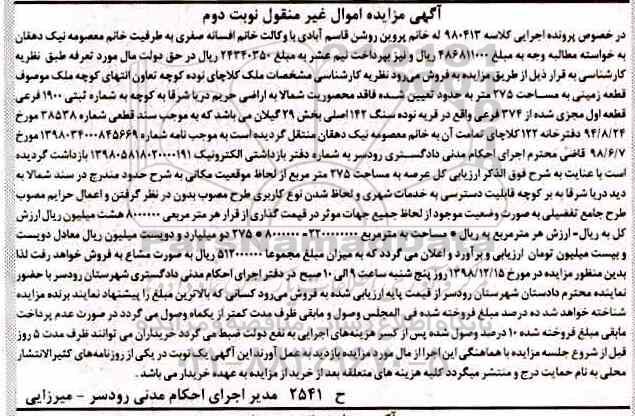 آگهی مزایده اموال غیر منقول نوبت دوم
در خصوص پرونده اجرایی کلاسه ۹۸۰۴۱۳ له خانم پروین روشن قاسم آبادی با وکالت خانم افسانه صفری به طرفیت خانم معصومه نیک دهقان
به خواسته مطالبه وجه به مبلغ ۴۸۶۸۱۱۰۰۰ ریال و نیز پرداخت نیم عشر به مبلغ ۲۴۳۴۰۳۵۰ ریال در حق دولت مال مورد تعرفه طبق نظریه
کارشناسی به قرار ذیل از طریق مزایده به فروش می‌رود نظریه کارشناسی مشخصات ملک کلاچای نوده کوچه تعاون انتهای کوچه ملک موصوف
قطعه زمینی به مساحت ۲۷۵ متر به حدود تعیین شده فاقد محصوریت شمالا به اراضی حریم دریا شرقا به کوچه به شماره ثبتی ۱۹۰۰ فرعی
قطعه اول مجزی شده از ۳۷۴ فرعی واقع در قریه نوده سنگ ۱۴۲ اصلی بخش ۲۹ گیلان می باشد که به موجب سند قطعی شماره ۳۸۵۳۸ مورخ
۹۴/۸/۲۴ دفترخانه ۱۲۲ کلاچای تمامت آن به خانم معصومه نیک دهقان منتقل گردیده است به موجب نامه شماره ۱۳۹۸۰۳۴۰۰۰۸۴۵۶۶۹ مورخ
۹۸/۶/۷ قاضی محترم اجرای احکام مدنی دادگستری رودسر به شماره دفتر بازداشتی الکترونیک ۱۳۹۸۰۵۸۱۸۰۲۰۰۰۰۱۹۱ بازداشت گردیده
است با عنایت به شرح فوق الذکر ارزیابی کل عرصه به مساحت ۲۷۵ متر مربع از لحاظ موقعیت مکانی به شرح حدود مندرج در سند شمالا به
دید دریا شرقا به بر کوچه قابلیت دسترسی به خدمات شهری و لحاظ شدن نوع کاربری طرح مصوب بدون در نظر گرفتن و اعمال حرایم مصوب
طرح جامع تفضیلی به صورت وضعیت موجود از لحاظ جمیع جهات موثر در قیمت گذاری از قرار هر متر مربعی ۸۰۰۰۰۰۰ هشت میلیون ریال ارزش
کل به ریال- ارزش هر مترمربع به ریال * مساحت به مترمربع ۲۲۰۰۰۰۰۰۰۰= ۸۰۰۰۰۰۰ * ۲۷۵ دو میلیارد و دویست میلیون ریال معادل دویست
و بیست میلیون تومان ارزیابی و برآورد و اعلان می گردد که به میزان مبلغ مجموعا ۵۱۲۰۰۰۰۰۰ ریال به صورت مشاع به فروش خواهد رفت لذا
بدین منظور مزایده در مورخ ۱۳۹۸/۱۲/۱۵ روز پنج شنبه ساعت ۹ الی ۱۰ صبح در دفتر اجرای احکام مدنی دادگستری شهرستان رودسر با حضور
نماینده محترم دادستان شهرستان رودسر از قیمت پایه ارزیابی شده به فروش می‌رود کسانی که بالاترین مبلغ را پیشنهاد نمایند برنده مزایده
شناخته خواهد شد ده درصد مبلغ فروخته شده فی المجلس وصول و مابقی ظرف مدت کمتر از یکماه وصول می گردد در صورت عدم پرداخت
مابقی مبلغ فروخته شده ۱۰ درصد وصول شده پس از کسر هزینه‌های اجرایی به نفع دولت ضبط می گردد خریداران می توانند ظرف مدت ۵ روز
قبل از شروع جلسه مزایده با هماهنگی این اجرا از مال مورد مزایده بازدید به عمل آورند این آگهی یک نوبت در یکی از روزنامه‌های کثیرالانتشار
محلی به نام حمایت درج و منتشر میگردد کلیه هزینه های متعلقه بعد از خرید از مزایده به عهده خریدار می باشد.
ح ۲۵۴۱ مدیر اجرای احکام مدنی رودسر - میرزایی